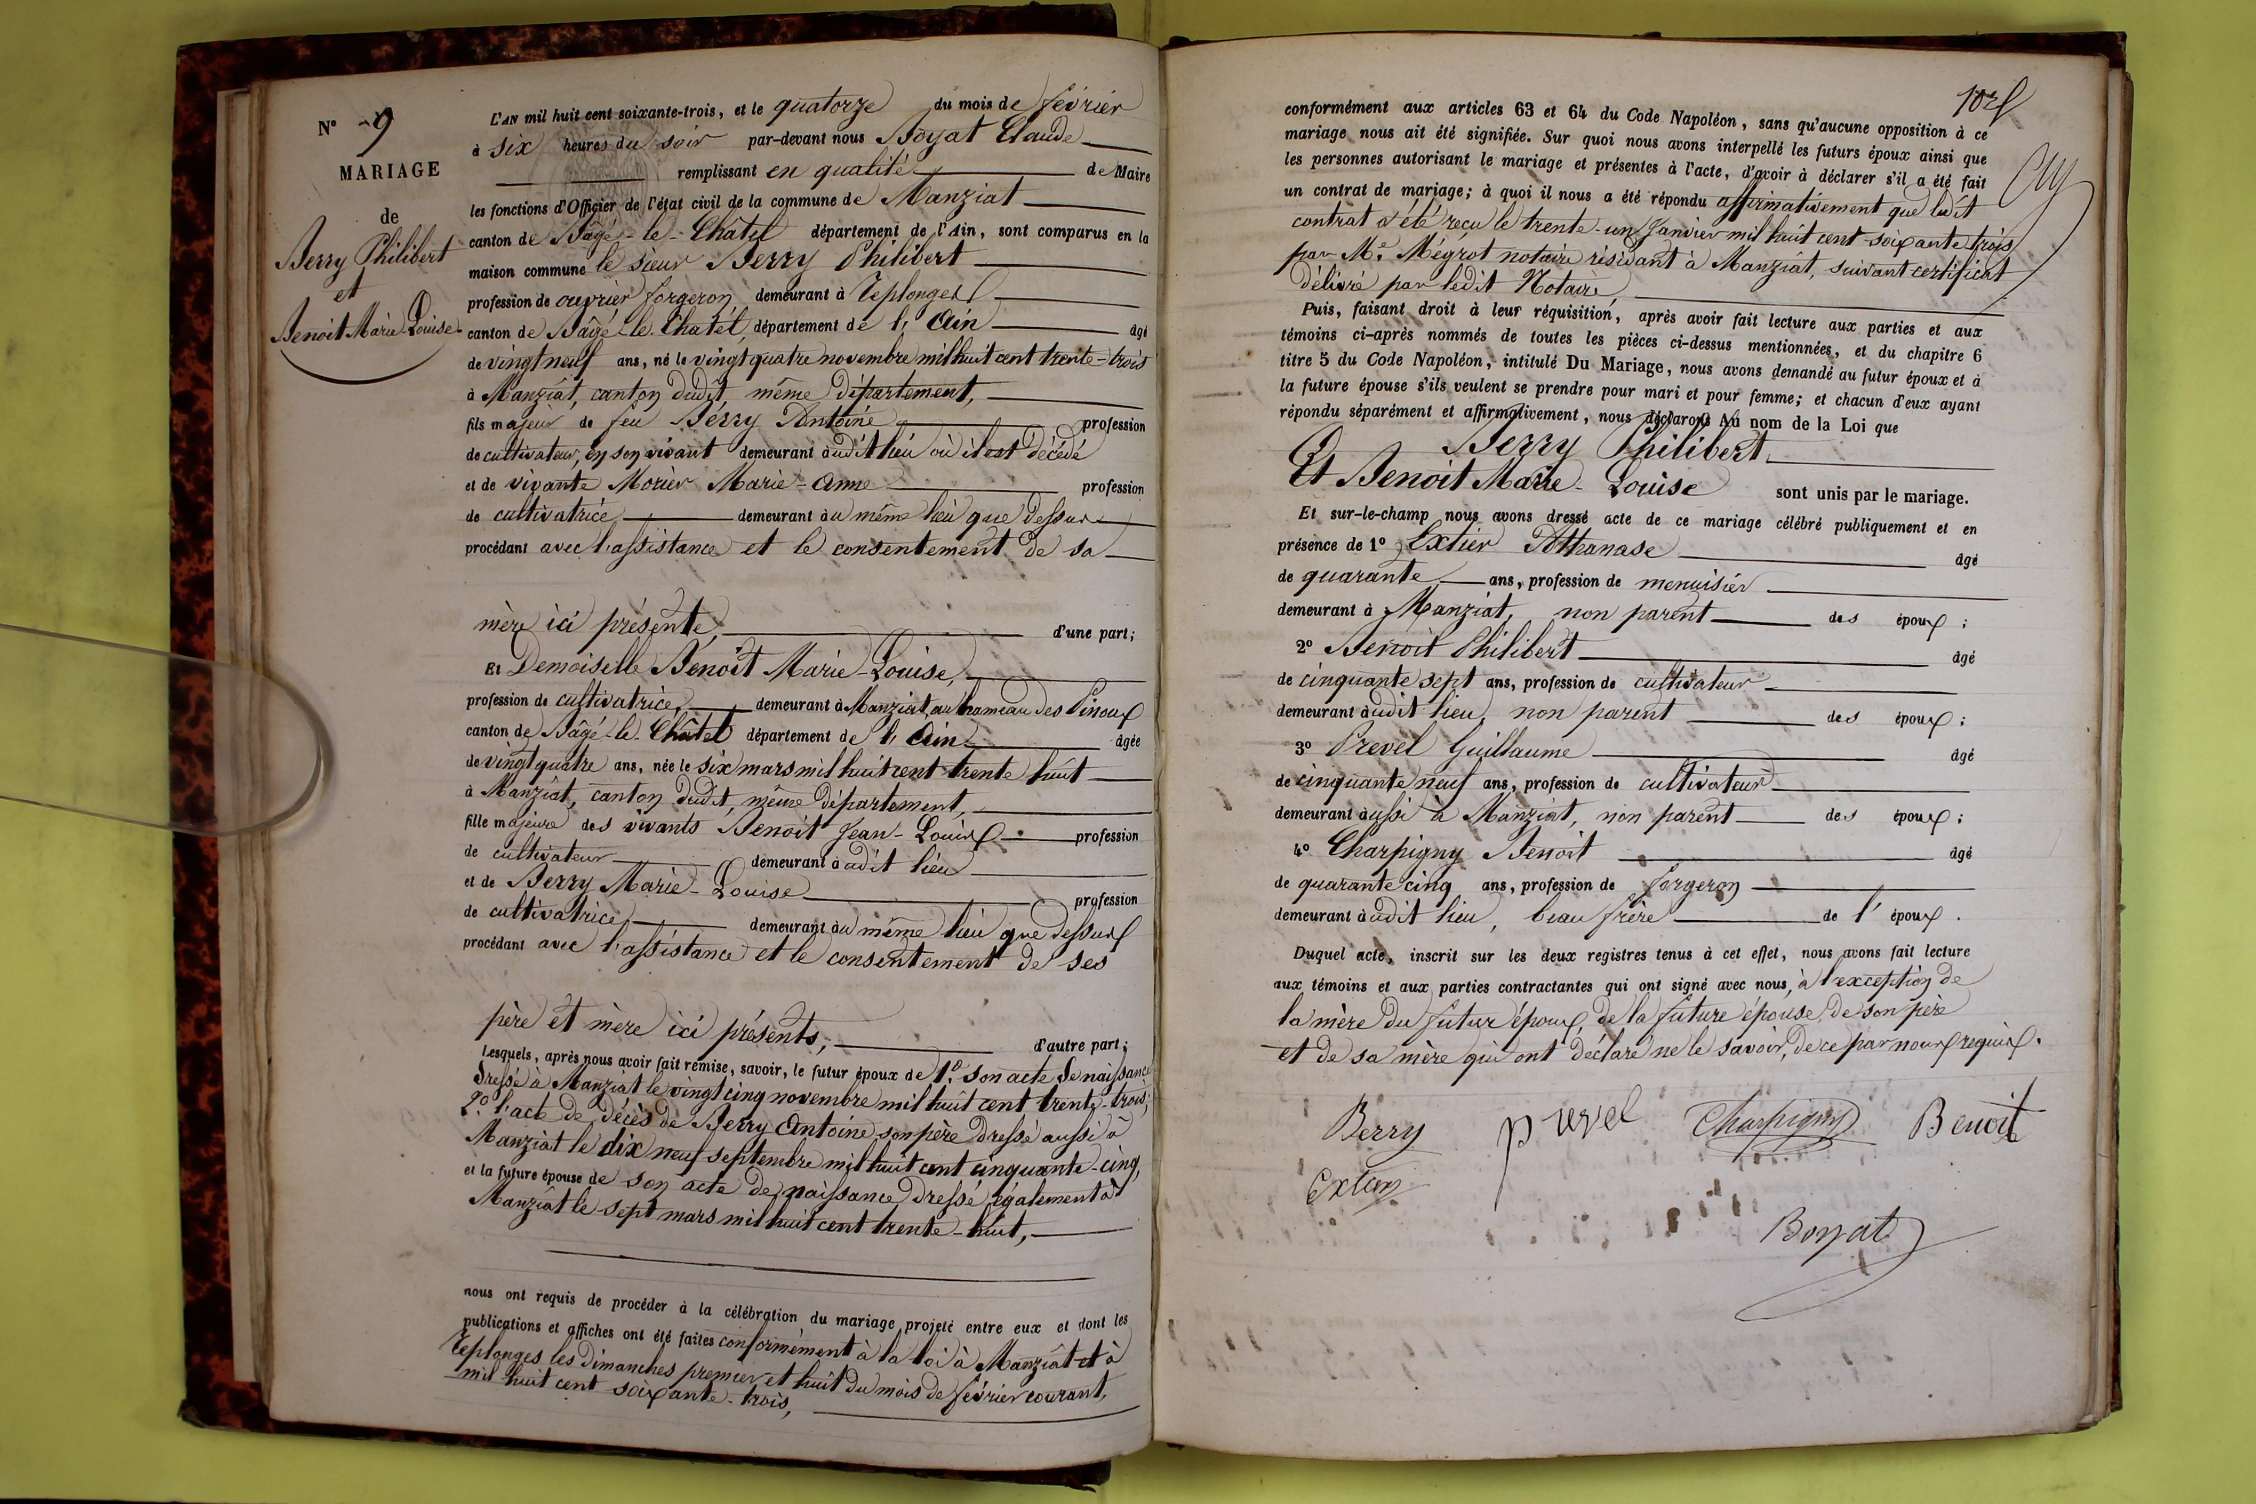 N° 9
MARIAGE
de
Berry Philibert
et
Benoit Marie-Louise
L'AN mil huit cent soixante-trois, et le quatorze du mois de février
à six heures du soir par-devant nous Boyat Claude
remplissant en qualité de Maire
les fonctions d'Officier de l'état civil de la commune de Manziat
canton de Bâgé-le-Châtel département de l'Ain, sont comparus en la
maison commune le sieur Berry Philibert
profession de ouvrier forgeron, demeurant à Replonges
canton de Bâgé-le-Chatel, département de l'Ain âgé
de vingt neuf ans, né le vingt quatre novembre mil huit cent trente-trois
à Manziat, canton dudit, même département,
fils majeur de feu Berry Antoine profession
de cultivateur, en son vivant demeurant audit lieu où il est décédé
et de vivante Morier Marie-Anne profession
de cultivatrice demeurant au même lieu que dessus
procédant avec l'assistance et le consentement de sa
mère ici présente, d'une part;
Et Demoiselle Benoit Marie-Louise,
profession de cultivatrice, demeurant à Manziat, au hameau des Pinoux
canton de Bâgé-le-Châtel département de l'Ain âgée
de vingt quatre ans, née le six mars mil huit cent trente huit
à Manziat, canton dudit, même département,
fille majeure des vivants Benoit Jean-Louis profession
de cultivateur demeurant à audit lieu
et de Berry Marie-Louise profession
de cultivatrice demeurant au même lieu que dessus
procédant avec l'assistance et le consentement de ses
père et mère ici présents, d'autre part;
Lesquels, après nous avoir fait remise, savoir, le futur époux de 1.° son acte de naissance
dressé à Manziat le vingt cinq novembre mil huit cent trente-trois;
2.° l'acte de décès de Berry Antoine son père dressé aussi à
Manziat le dix neuf septembre mil huit cent cinquante-cinq,
et la future épouse de son acte de naissance dressé également à
Manziat le sept mars mil huit cent trente-huit,
nous ont requis de procéder à la célébration du mariage projeté entre eux et dont les
publications et affiches ont été faites conformément à la loi à Manziat et à
Replonges les dimanches premier et huit du mois de février courant,
mil huit cent soixante-trois,
conformément aux articles 63 et 64 du Code Napoléon, sans qu'aucune opposition à ce
mariage nous ait été signifiée. Sur quoi nous avons interpellé les futurs époux ainsi que
les personnes autorisant le mariage et présentes à l'acte, d'avoir à déclarer s'il a été fait
un contrat de mariage; à quoi il nous a été répondu affirmativement que ledit
contrat a été reçu le trente-un Janvier mil huit cent-soixante trois
par M.e Mégrot notaire résidant à Manziat, suivant certificat
délivré par ledit Notaire,
Puis, faisant droit à leur réquisition, après avoir fait lecture aux parties et aux
témoins ci-après nommés de toutes les pièces ci-dessus mentionnées, et du chapitre 6
titre 5 du Code Napoléon, intitulé Du Mariage, nous avons demandé au futur époux et à
la future épouse s'ils veulent se prendre pour mari et pour femme; et chacun d'eux ayant
répondu séparément et affirmativement, nous déclarons Au nom de la Loi que
Berry Philibert
Et Benoit Marie-Louise sont unis par le mariage.
Et sur-le-champ nous avons dressé acte de ce mariage célébré publiquement et en
présence de 1° Extier Athanase âgé
de quarante ans, profession de menuisier
demeurant à Manziat, non parent des époux;
2° Benoit Philibert âgé
de cinquante sept ans, profession de cultivateur
demeurant audit lieu, non parent des époux;
3° Prevel Guillaume âgé
de cinquante neuf ans, profession de cultivateur
demeurant aussi à Manziat, non parent des époux;
4° Charpigny Benoit âgé
de quarante cinq ans, profession de forgeron
demeurant audit lieu, beau frère de l'époux.
Duquel acte, inscrit sur les deux registres tenus à cet effet, nous avons fait lecture
aux témoins et aux parties contractantes qui ont signé avec nous, à l'exception de
la mère du futur époux, de la future épouse, de son père
et de sa mère qui ont déclaré ne le savoir, de ce par nous requis.
Berry prevel Charpigny Benoit
Extier
Boyat